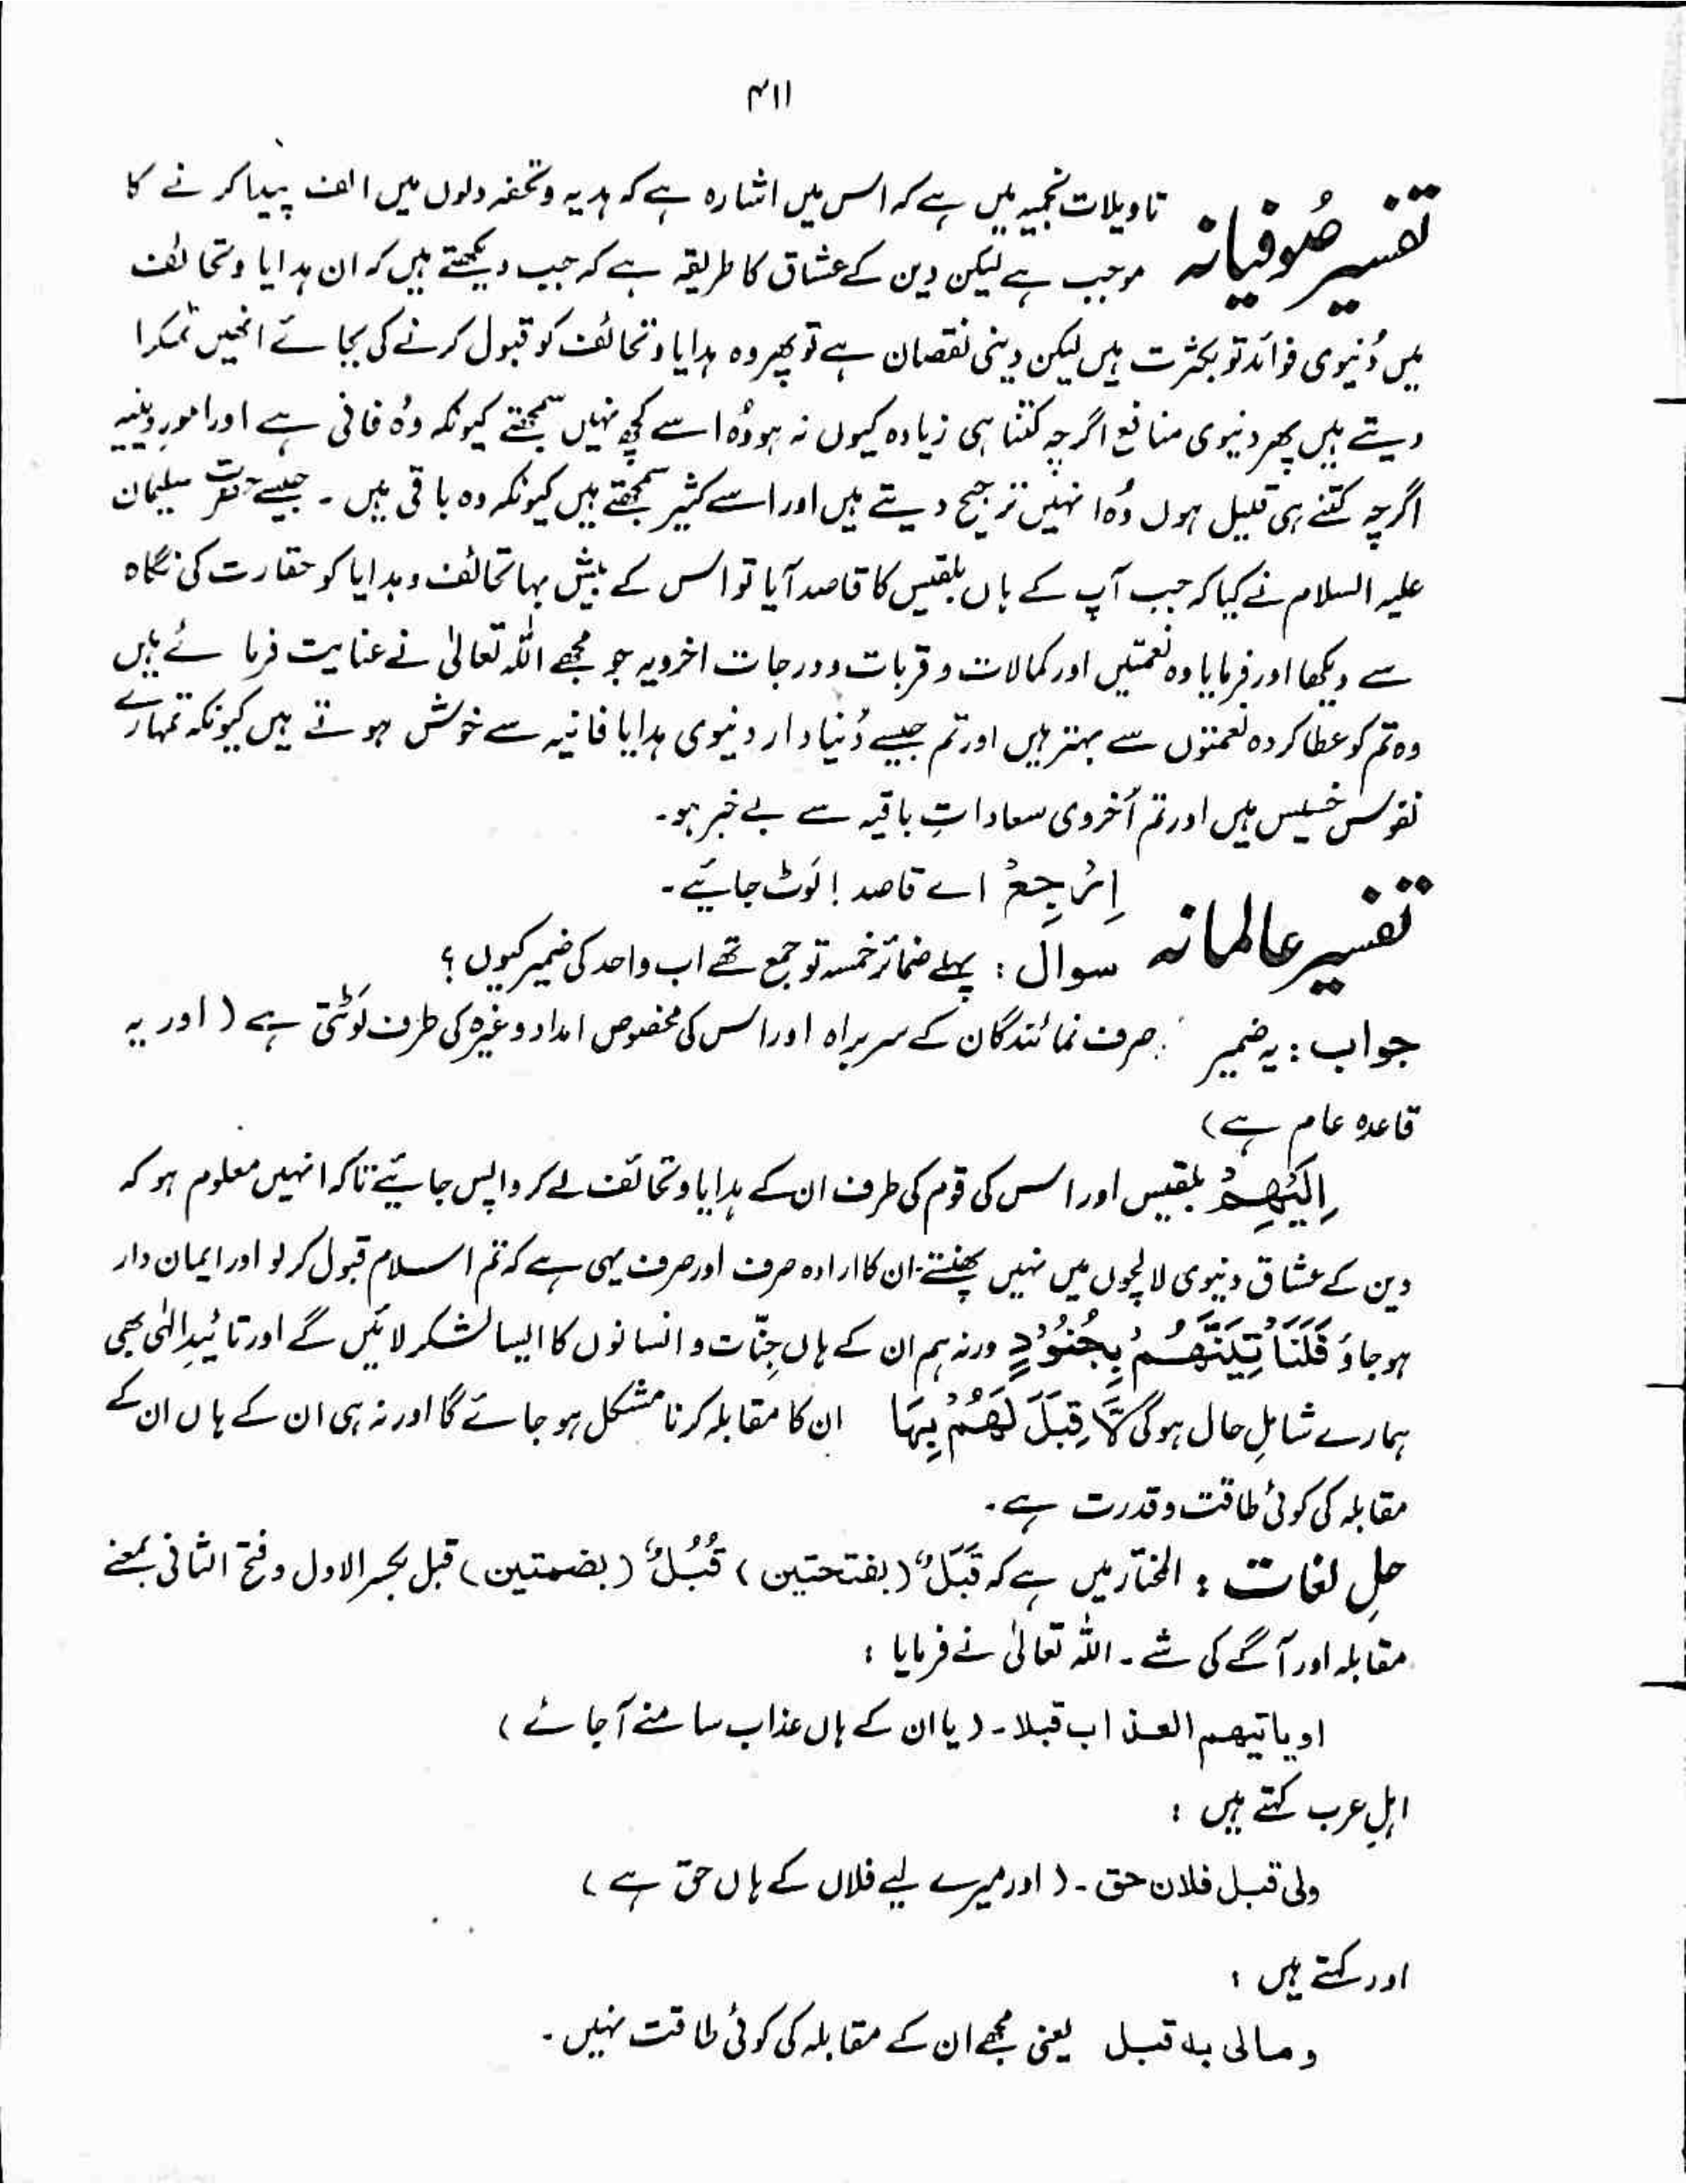 ۴۱۱
تفسیر صُوفیانہ تاویلات نجمیہ میں ہے کہ اس میں اشارہ ہے کہ ہدیہ و تحفہ دلوں میں الفت پیدا کرنے کا
موجب ہے لیکن دین کے عشاق کا طریقہ ہے کہ جب دیکھتے ہیں کہ ان ہدایا و تحائف
میں دُنیوی فوائد تو بکثرت ہیں لیکن دینی نقصان ہے تو پھر وہ ہدایا و تحائف کو قبول کرنے کی بجائے انھیں ٹھکرا
دیتے ہیں پھر دنیوی منافع اگرچہ کتنا ہی زیادہ کیوں نہ ہو وُہ اسے کچھ نہیں سمجھتے کیونکہ وُہ فانی ہے اور امورِ دینیہ
اگرچہ کتنے ہی قلیل ہوں وُہ انہیں ترجیح دیتے ہیں اور اسے کثیر سمجھتے ہیں کیونکہ وہ باقی ہیں ۔ جیسے حضرت سلیمان
علیہ السلام نے کیا کہ جب آپ کے ہاں بلقیس کا قاصد آیا تو اس کے بیش بہا تحائف و ہدایا کو حقارت کی نگاہ
سے دیکھا اور فرمایا وہ نعمتیں اور کمالات و قربات و درجات اخرویہ جو مجھے اللہ تعالیٰ نے عنایت فرمائے ہیں
وہ تم کو عطا کردہ نعمتوں سے بہتر ہیں اور تم جیسے دُنیا دار دنیوی ہدایا فانیہ سے خوش ہوتے ہیں کیونکہ تمہارے
نفوس خسیس ہیں اور تم اُخروی سعاداتِ باقیہ سے بے خبر ہو۔
تفسیر عالمانہ اِرْجِعْ اے قاصد ! لَوٹ جائیے ۔
سوال : پہلے ضمائر خمسہ تو جمع تھے اب واحد کی ضمیر کیوں ؟
جواب : یہ ضمیر صرف نمائندگان کے سربراہ اور اس کی مخصوص امداد وغیرہ کی طرف لَوٹتی ہے ( اور یہ
قاعدہ عام ہے )
اِلَیْهِمْ بلقیس اور اس کی قوم کی طرف ان کے ہدایا و تحائف لے کر واپس جائیے تاکہ انہیں معلوم ہو کہ
دین کے عشاق دنیوی لالچوں میں نہیں پھنستے ۔ ان کا ارادہ صرف اور صرف یہی ہے کہ تم اسلام قبول کرلو اور ایمان دار
ہوجاؤ فَلَنَاْتِیَنَّهُمْ بِجُنُوْدٍ ورنہ ہم ان کے ہاں جِنّات و انسانوں کا ایسا لشکر لائیں گے اور تائیدِ الٰہی بھی
ہمارے شاملِ حال ہوگی لَّا قِبَلَ لَهُمْ بِهَا ان کا مقابلہ کرنا مشکل ہو جائے گا اور نہ ہی ان کے ہاں ان کے
مقابلہ کی کوئی طاقت و قدرت ہے ۔
حلِ لغات : المختار میں ہے کہ قَبَلٌ ( بفتحتین ) قُبُلٌ ( بضمتین ) قبل بکسر الاول و فتح الثانی بمعنے
مقابلہ اور آگے کی شے ۔ اللہ تعالیٰ نے فرمایا :
او یاتیهم العذاب قبلا ۔ ( یا ان کے ہاں عذاب سامنے آجائے )
اہلِ عرب کہتے ہیں :
ولی قبل فلان حق ۔ ( اور میرے لیے فلاں کے ہاں حق ہے )
اور کہتے ہیں :
ومالی بہ قبل یعنی مجھے ان کے مقابلہ کی کوئی طاقت نہیں ۔